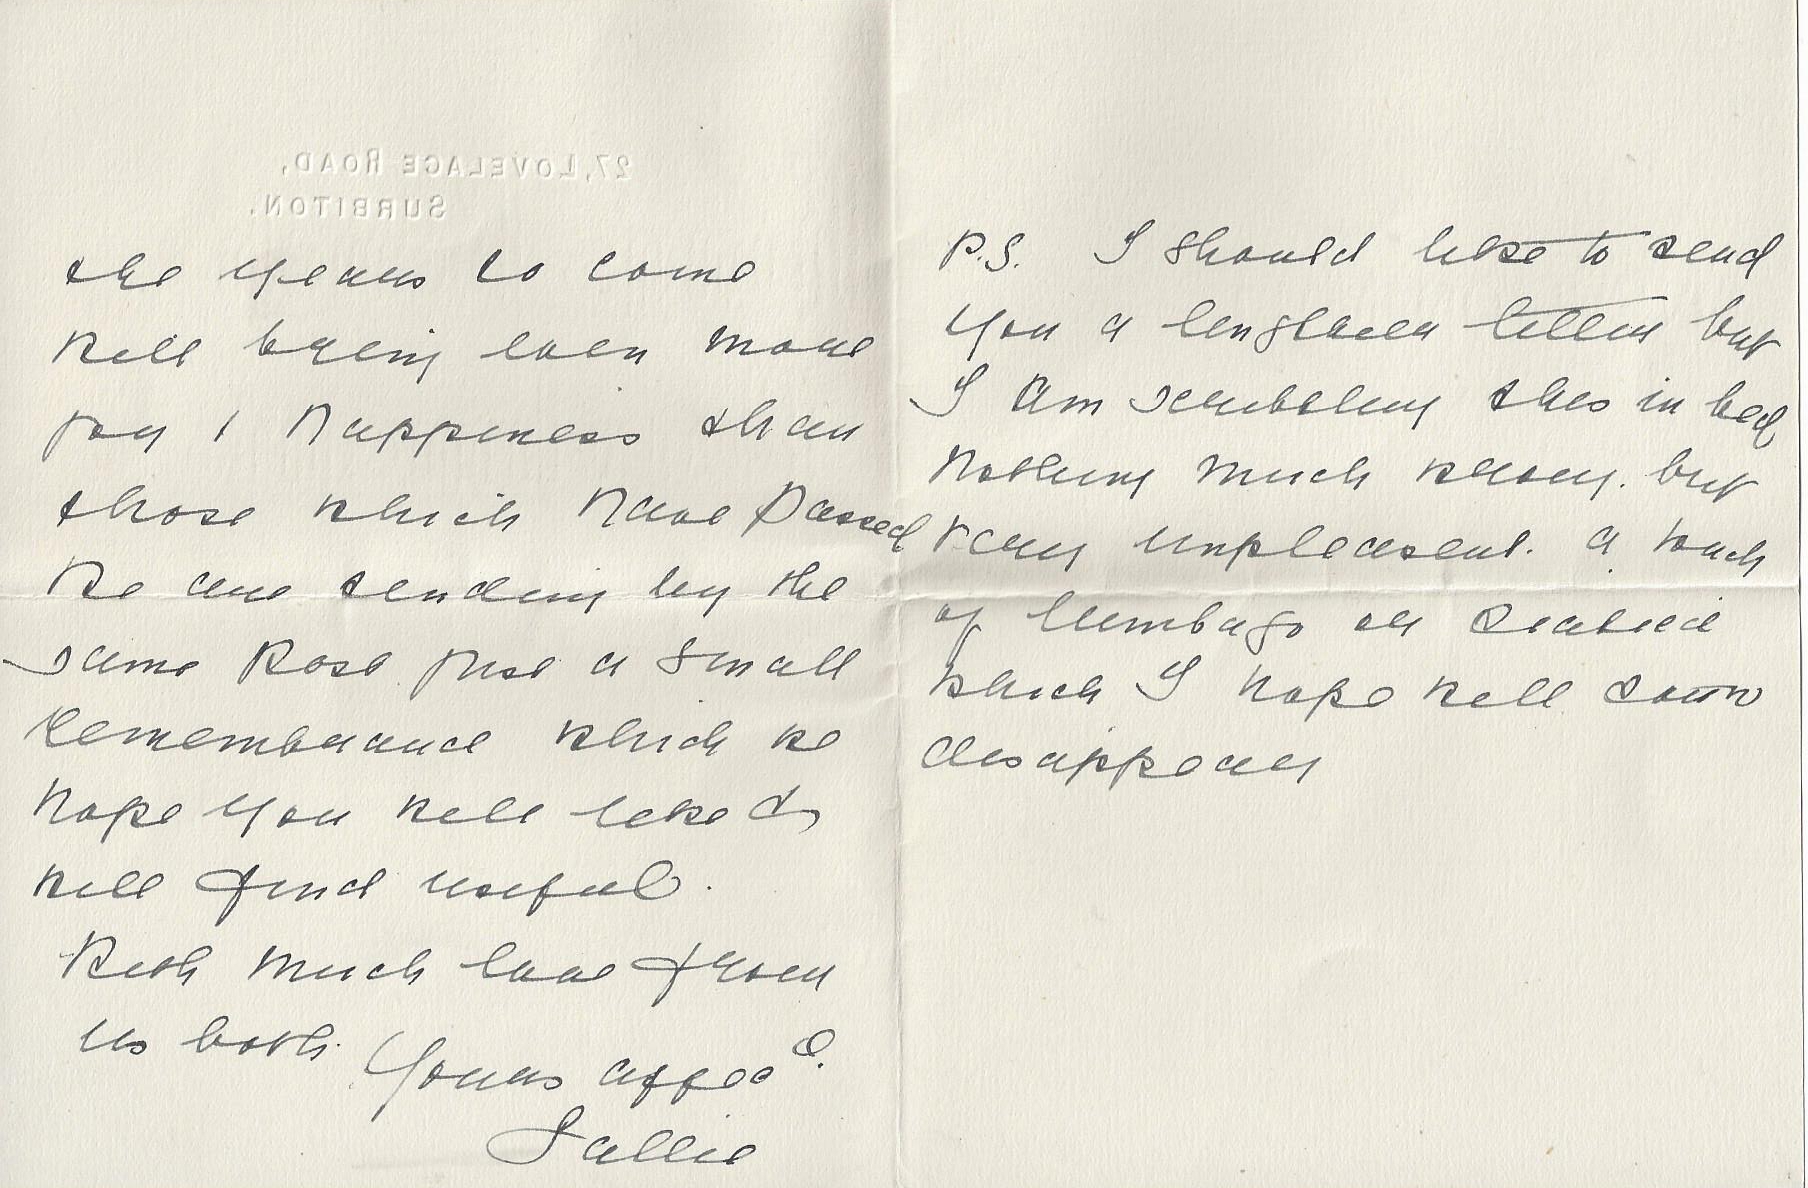 27, LOVELACE ROAD,
SURBITON.
the years to come
will bring even more
joy & happiness than
those which have passed
We are sending by the
same post just a small
remembrance which we
hope you will like &
will find useful.
With much love from
us both.
Yours affec
Sallie
P.S. I should like to send
you a lengthier letter but
I am scribbling this in bed
nothing much wrong. but
very unpleasent. a touch
of lumbago or sciatica
which I hope will soon
disappear